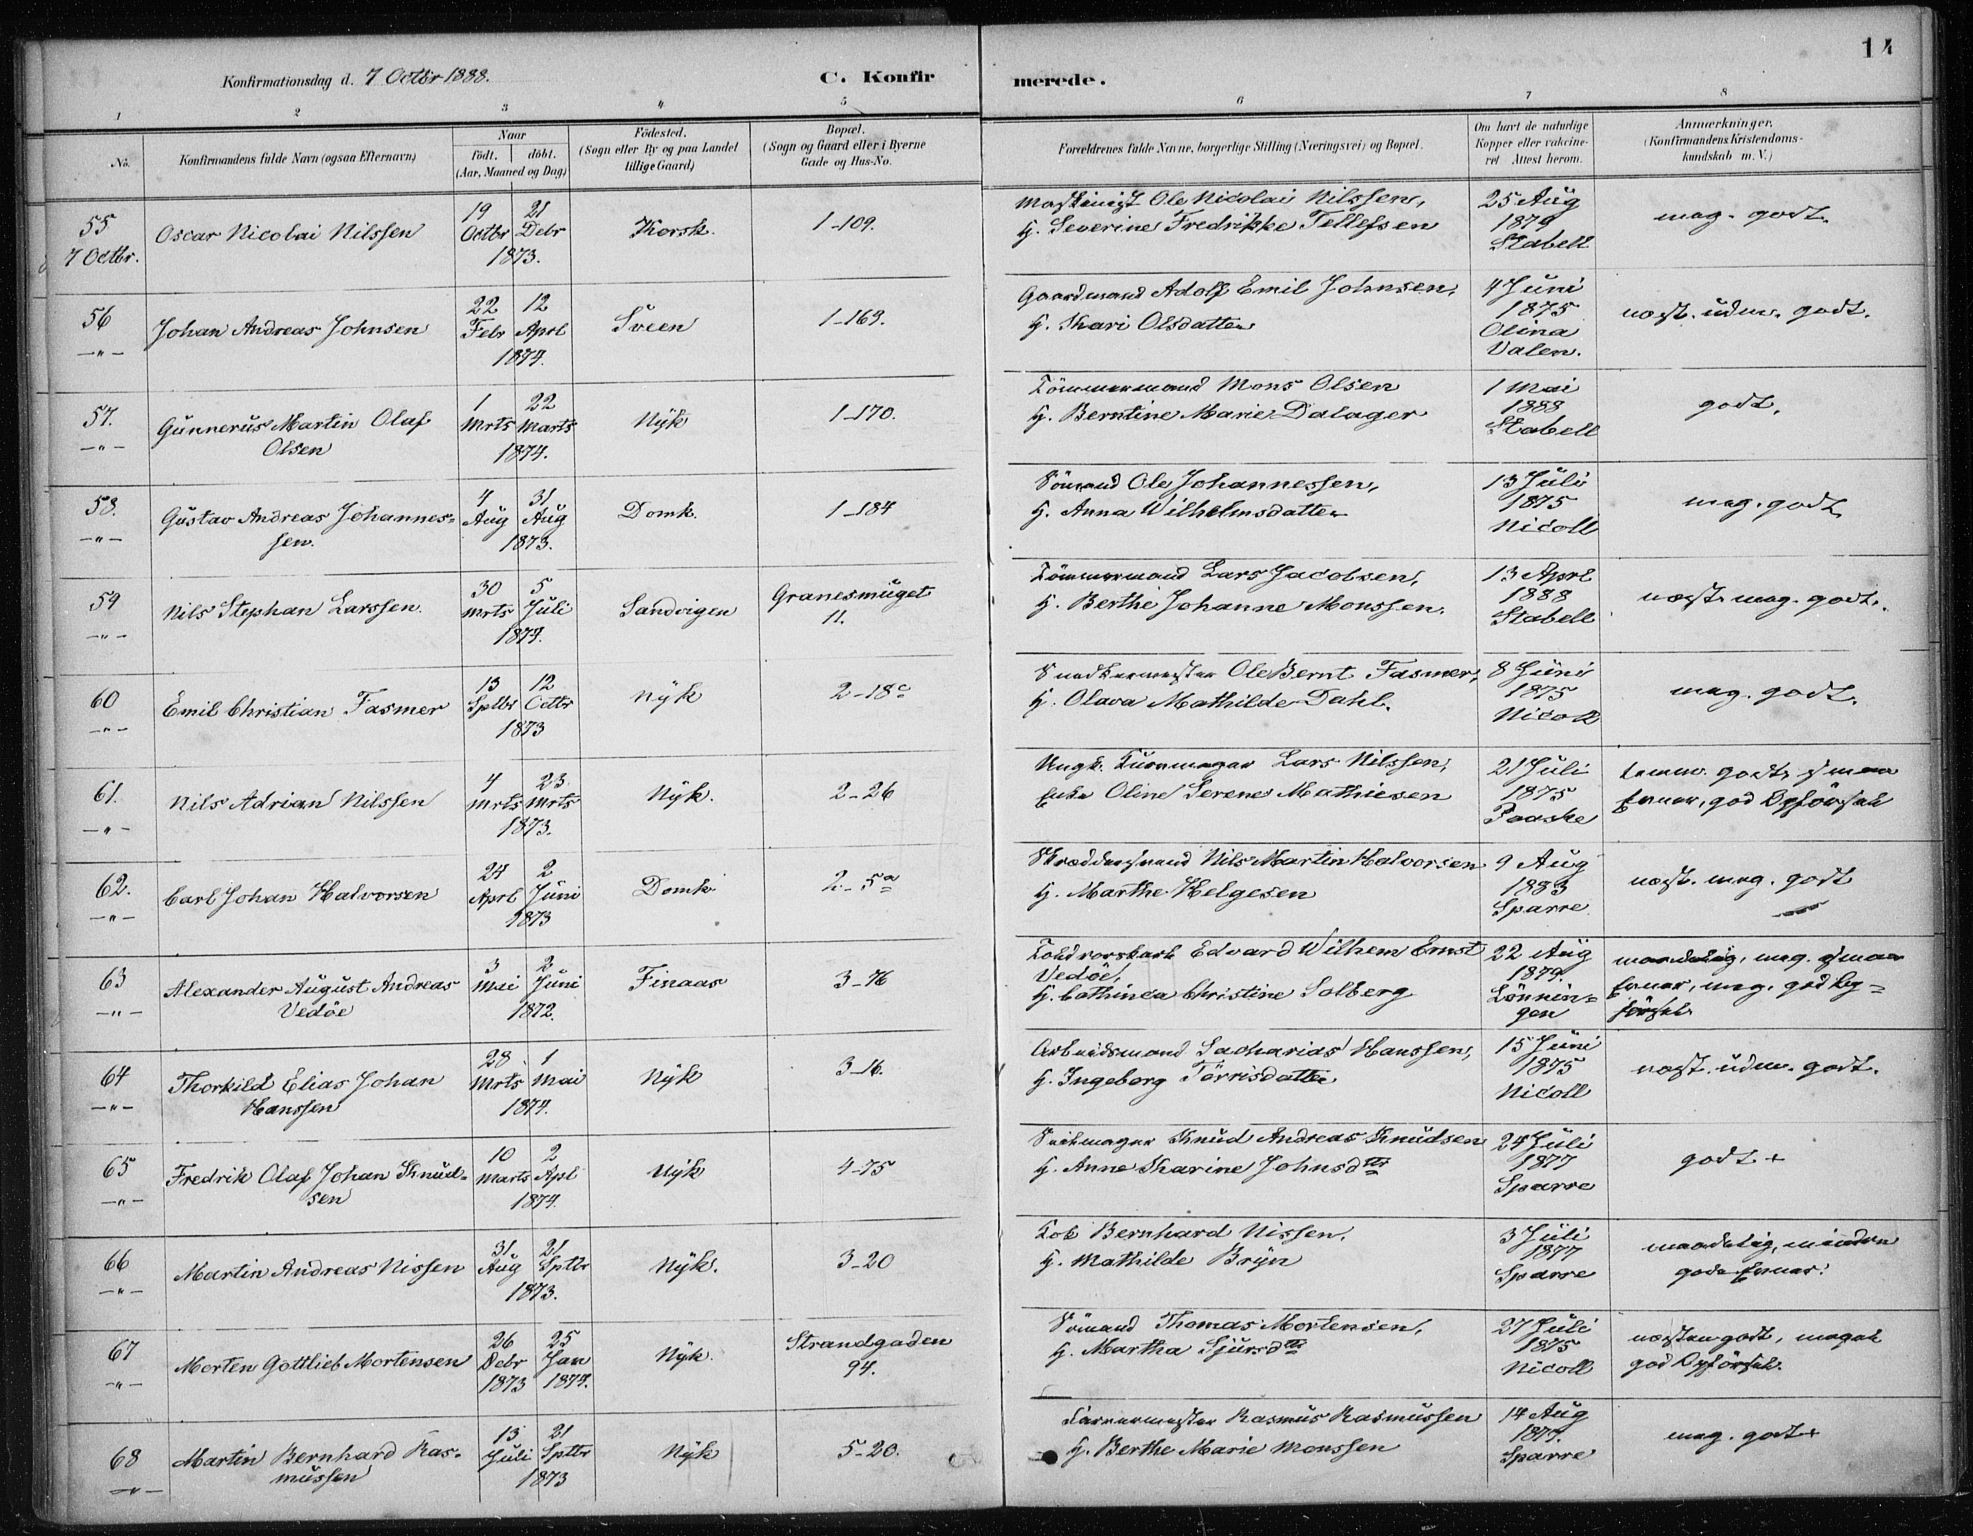 14
Konfirmationsdag d. 7 Octbr 1888.
C. Konfirmerede.
1 2 3 4 5 6 7 8
No.
Konfirmandens fulde Navn (ogsaa Efternavn)
Naar
födt. döbt.
(Aar, Maaned og Dag)
Födested.
(Sogn eller By og paa Landet
tillige Gaard)
Bopæl.
(Sogn og Gaard eller i Byerne
Gade og Hus-No.
Forældrenes fulde Navne, borgerlige Stilling (Næringsvei) og Bopæl.
Om havt de naturlige
Kopper eller vakcine-
ret Attest herom.
Anmærkninger.
(Konfirmandens Kristendoms-
kundskab m. V.)
55
7 Octbr.
Oscar Nicolai Nilssen
19 Octbr 21 Debr
1873.
Korsk.
1-109.
Maskinist Ole Nicolai Nilssen,
H. Severine Fredrikke Tellefsen
25 Aug
1879
Stabell
mag. godt.
56
-"-
Johan Andreas Johnsen
22 Febr 12 Aprl
1874.
Sveen
1-169.
Gaardmand Adolf Emil Johnsen,
H. Kari Olsdatter
4 Juni
1875
Olina
Valen.
næst. udm. godt.
57.
-"-
Gunnerus Martin Olaf
Olsen
1 Mrts 22 Marts
1874.
Nÿk
1-170.
Tömmermand Mons Olsen
H. Berntine Marie Dalager
1 Mai
1888
Stabell
godt.
58.
-"-
Gustav Andreas Johannes-
sen.
4 Aug 31 Aug
1873.
Domk.
1-184
Sömand Ole Johannessen,
H. Anna Wilhelmsdatter
13 Juli
1875
Nicoll
mag. godt
59
-"-
Nils Stephan Larssen.
30 Mrts 5 Juli
1874.
Sandvigen
Granesmuget
11.
Tömmermand Lars Jacobsen,
H. Berthe Johanne Monssen.
13 Aprl
1888
Stabell
næst. mag. godt.
60
-"-
Emil Christian Fasmer
13 Sptbr 12 Octbr
1873
Nÿk
2-18c
Snedkermester Ole Bernt Fasmer,
H. Olava Mathilde Dahl.
8 Juni
1875
Nicoll
mag. godt.
61.
-"-
Nils Adrian Nilssen
4 Mrts 23 Mrts
1873.
Nÿk.
2-26
Ungk. Lars Nilssen,
Oline Serene Mathiesen
21 Juli
1875
Paaske
temm. godt, smaa
Evner, god Opförsel
62.
-"-
Carl Johan Halvorsen
24 Aprl 2 Juni
1873
Domk
2-5a
Skræddersvend Nils Martin Halvorsen
H. Marthe Helgesen
9 Aug
1883
Sparre
næst. mag. godt
63
-"-
Alexander August Andreas
Vedöe
3 Mai 2 Juni
1872.
Finaas
3-76
Edvard Wilhem Ernst
Vedöe,
H. Cathinca Christine Solberg
22 Aug
1879.
Lönnin-
gen
maadelig, mag. smaa
Evner, mag. god Op-
försel.
64
-"-
Thorkild Elias Johan
Hanssen
28 Mrts 1 Mai
1874.
Nÿk
3-16.
Arbeidsmand Sacharias Hanssen,
H. Ingeborg Törrisdatter
15 Juni
1875
Nicoll
næst. udm. godt.
65
-"-
Fredrik Olaf Johan Knud-
sen
10 Marts 2 Apl
1874.
Nÿk
4-75
Seilmager Knud Andreas Knudsen
H. Anne Karine Johnsdtr
24 Juli
1877
Sparre
godt +
66
-"-
Martin Andreas Nissen
31 Aug 21 Sptbr
1873.
Nÿk.
3-20
Bernhard Nissen,
H. Mathilde Brÿn
3 Juli
1877
Sparre
maadelig, mindre
gode Evner.
67
-"-
Morten Gottlieb Mortensen
26 Debr 1873 25 Jan 1874.
Nÿk.
Strandgaden
94.
Sömand Thomas Mortensen,
H. Martha Sjursdtr
27 Juli
1875
Nicoll
næsten godt, meget
god Opförsel.
68
-"-
Martin Bernhard Ras-
mussen
13 Juli 21 Sptbr
1873
Nÿk
5-20.
Rasmus Rasmussen
H. Berthe Marie Monssen
14 Aug
1877.
Sparre
mag. godt +